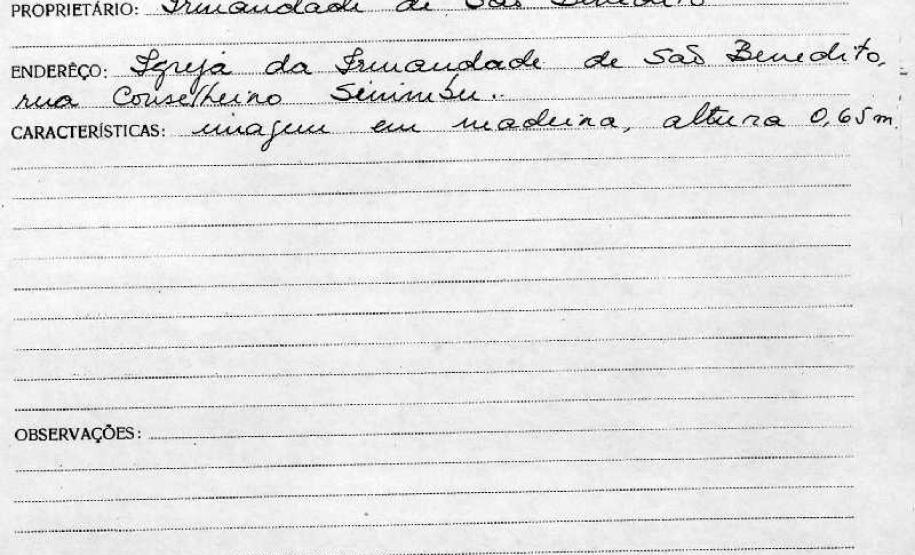 PROPRIETÁRIO: Irmandade de São Benedito
ENDERÊÇO: Igreja da Irmandade de São Benedito,
rua Conselheiro Sinimbu.
CARACTERÍSTICAS: imagem em madeira, altura 0,65m.
OBSERVAÇÕES: